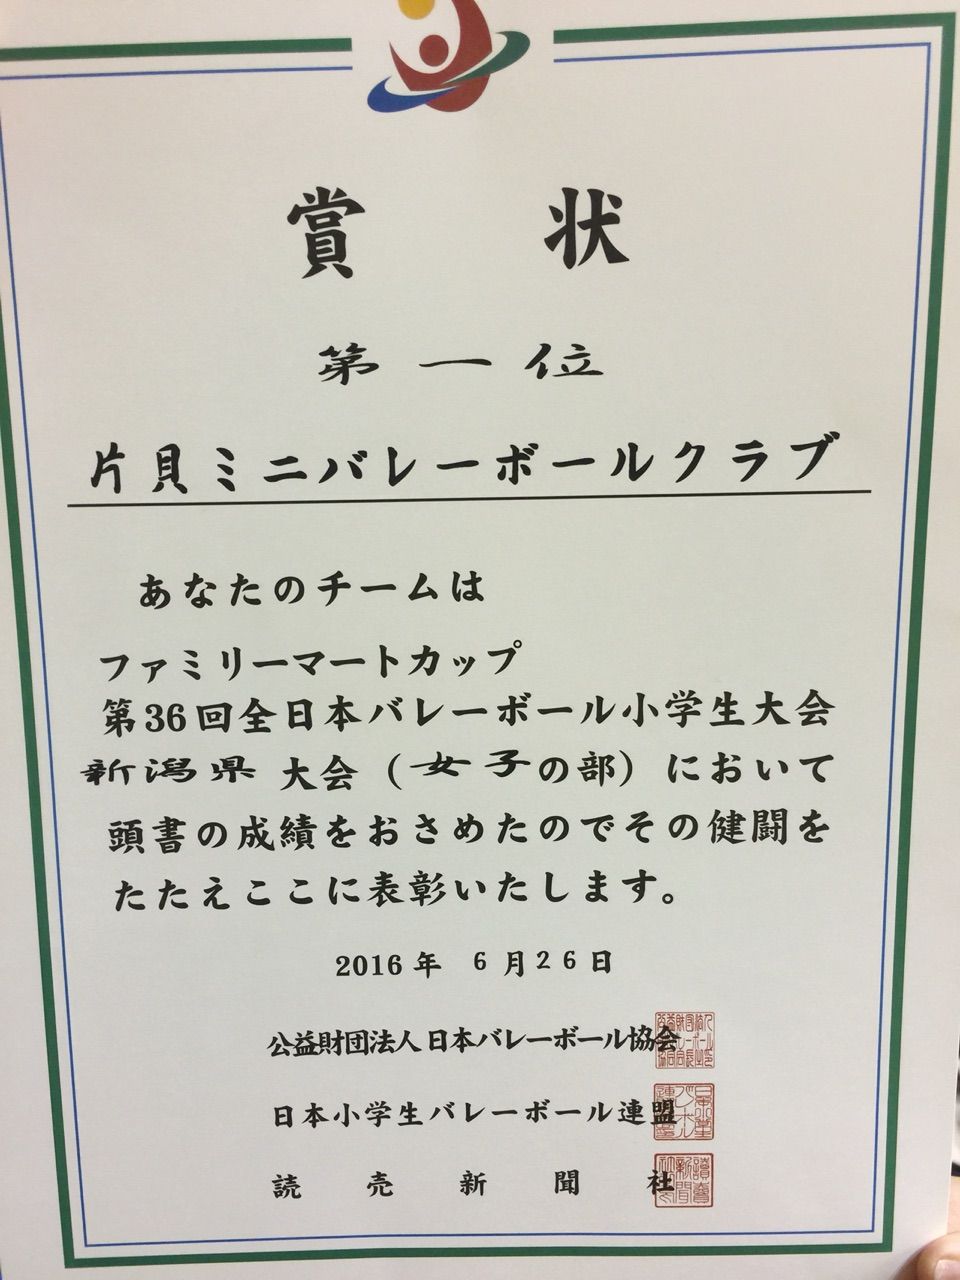 賞状
第一位
片貝ミニバレーボールクラブ
あなたのチームは
ファミリーマートカップ
第36回全日本バレーボール小学生大会
新潟県 大会（女子の部）において
頭書の成績をおさめたのでその健闘を
たたえここに表彰いたします。
2016年 6月26日
公益財団法人日本バレーボール協会
日本小学生バレーボール連盟
読売新聞社